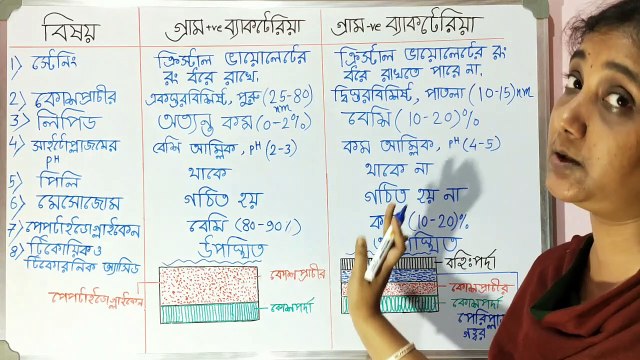 বিষয় গ্রাম +ve ব্যাকটেরিয়া গ্রাম -ve ব্যাকটেরিয়া
১) স্টেনিং ক্রিস্টাল ভায়োলেটের রং ধরে রাখে. ক্রিস্টাল ভায়োলেটের রং ধরে রাখতে পারে না.
২) কোশপ্রাচীর একস্তরবিশিষ্ট, পুরু (25-80) nm দ্বিস্তরবিশিষ্ট, পাতলা (10-15) nm
৩) লিপিড অত্যন্ত কম (0-2%) বেশি (10-20)%
৪) সাইটোপ্লাজমের pH বেশি আম্লিক, pH (2-3) কম আম্লিক, pH (4-5)
৫) পিলি থাকে থাকে না
৬) মেসোজোম গঠিত হয় গঠিত হয় না
৭) পেপটাইডোগ্লাইকেন বেশি (80-90%) (10-20)%
৮) টিকোয়িক ও উপস্থিত
কোশপ্রাচীর বহিঃপর্দা
পেপটাইডোগ্লাইকেন কোশপ্রাচীর
কোশপর্দা কোশপর্দা
গহ্বর